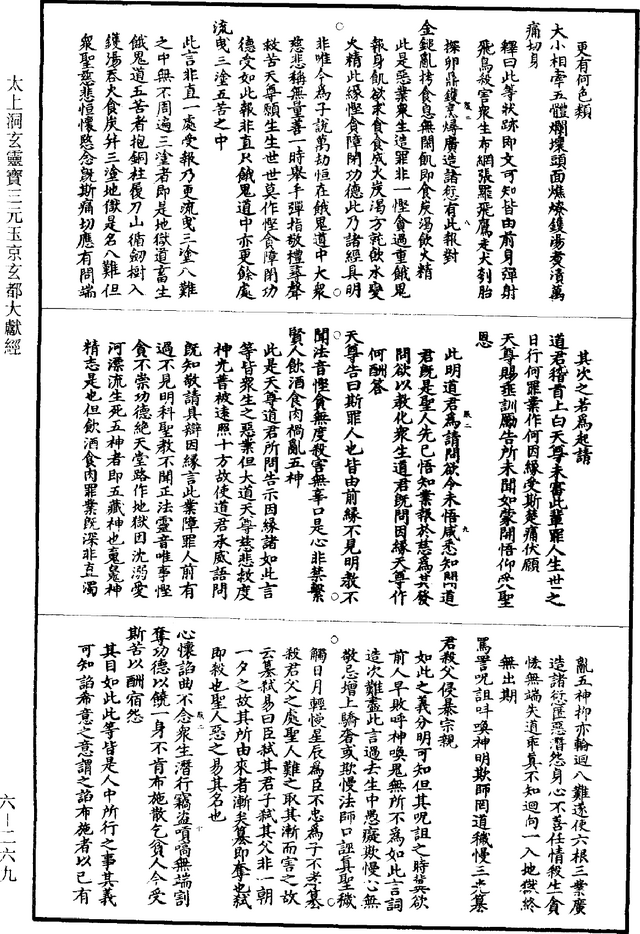 太上洞玄靈寶三元玉京玄都大獻經
更有何色類
大小相牽五體爛壞頭面燋燎鑊湯煮漬萬
痛切身
釋曰此等狀跡即文可知皆由前身彈射
飛鳥殺害衆生布網張羅飛鷹走犬刳胎
探卵鼎鑊烹燖廣造諸愆有此報對
金鎚亂拷食息無閑飢即食炭渴飲火精
此是惡業衆生造罪非一慳貪過重餓鬼
報身飢欲求食食成火炭渴方就飲水變
火精此緣慳貪障閉功德此乃諸經具明
非唯今為子說萬劫恒在餓鬼道中大衆
慈悲稱無量善一時舉手彈指敬禮尋聲
救苦天尊願生生世世莫作慳貪障閉功
德受如此報非直只餓鬼道中亦更餘處
流曳三塗五苦之中
此言非直一處受報乃更流曳三塗八難
之中無不周遍三塗者即是地獄道畜生
餓鬼道五苦者抱銅柱履刀山循劔樹入
鑊湯吞火食炭并三塗地獄是名八難但
衆聖慈悲恒懷愍念旣斯痛切應有問端
其次之若為起請
道君稽首上白天尊未審此輩罪人生世之
日行何罪業作何因緣受斯楚痛伏願
天尊賜垂訓勵告所未聞如蒙開悟仰受聖
恩
此明道君為請問欲令未悟咸悉知聞道
君旣是聖人先已悟知業報於慈為其發
問欲以教化衆生道君旣問因緣天尊作
何酬答
天尊告曰斯罪人也皆由前緣不見明教不
聞法音慳貪無度殺害無辜口是心非禁繫
賢人飲酒食肉禍亂五神
此是天尊道君所問告示因緣諸如此言
等皆衆生之惡業但大道天尊慈悲救度
神光普被遠照十方故使道君承威語問
旣知敬請具辯因緣言此業障罪人前有
過不見明科聖教不聞正法靈音唯事慳
貪不崇功德絕天堂路作地獄因沈溺愛
河漂流生死五神者即五藏神也䰟鬼神
精志是也但飲酒食肉罪業旣深非直濁
亂五神抑亦輪迴八難遂使六根三業廣
造諸愆匿惡潛怨身心不善任情殺生貪
恡無端失道乖真不知迴向一入地獄終
無出期
罵詈呪詛呌喚神明欺師罔道穢慢三光篡
君殺父侵暴宗親
如此之義分明可知但其呪詛之時莫欲
前人早敗呼神喚鬼無所不為如此言詞
造次難盡此言過去生中愚癡欺慢心無
敬忌增上驕奢或欺慢法師口誣真聖穢
觸日月輕慢星辰為臣不忠為子不孝篡
殺君父之處聖人難之取其漸而害之故
云篡弒易曰臣弒其君子弒其父非一朝
一夕之故其所由來者漸矣篡即奪也弒
即殺也聖人惡之易其名也
心懷諂曲不念衆生潛行竊盜嗔嗃無端割
奪功德以饒一身不肯布施散乞貧人今受
斯苦以酬宿怨
其目如此此等皆是人中所行之事其義
可知諂希意之意謂之諂布施者以己有
六—二六九